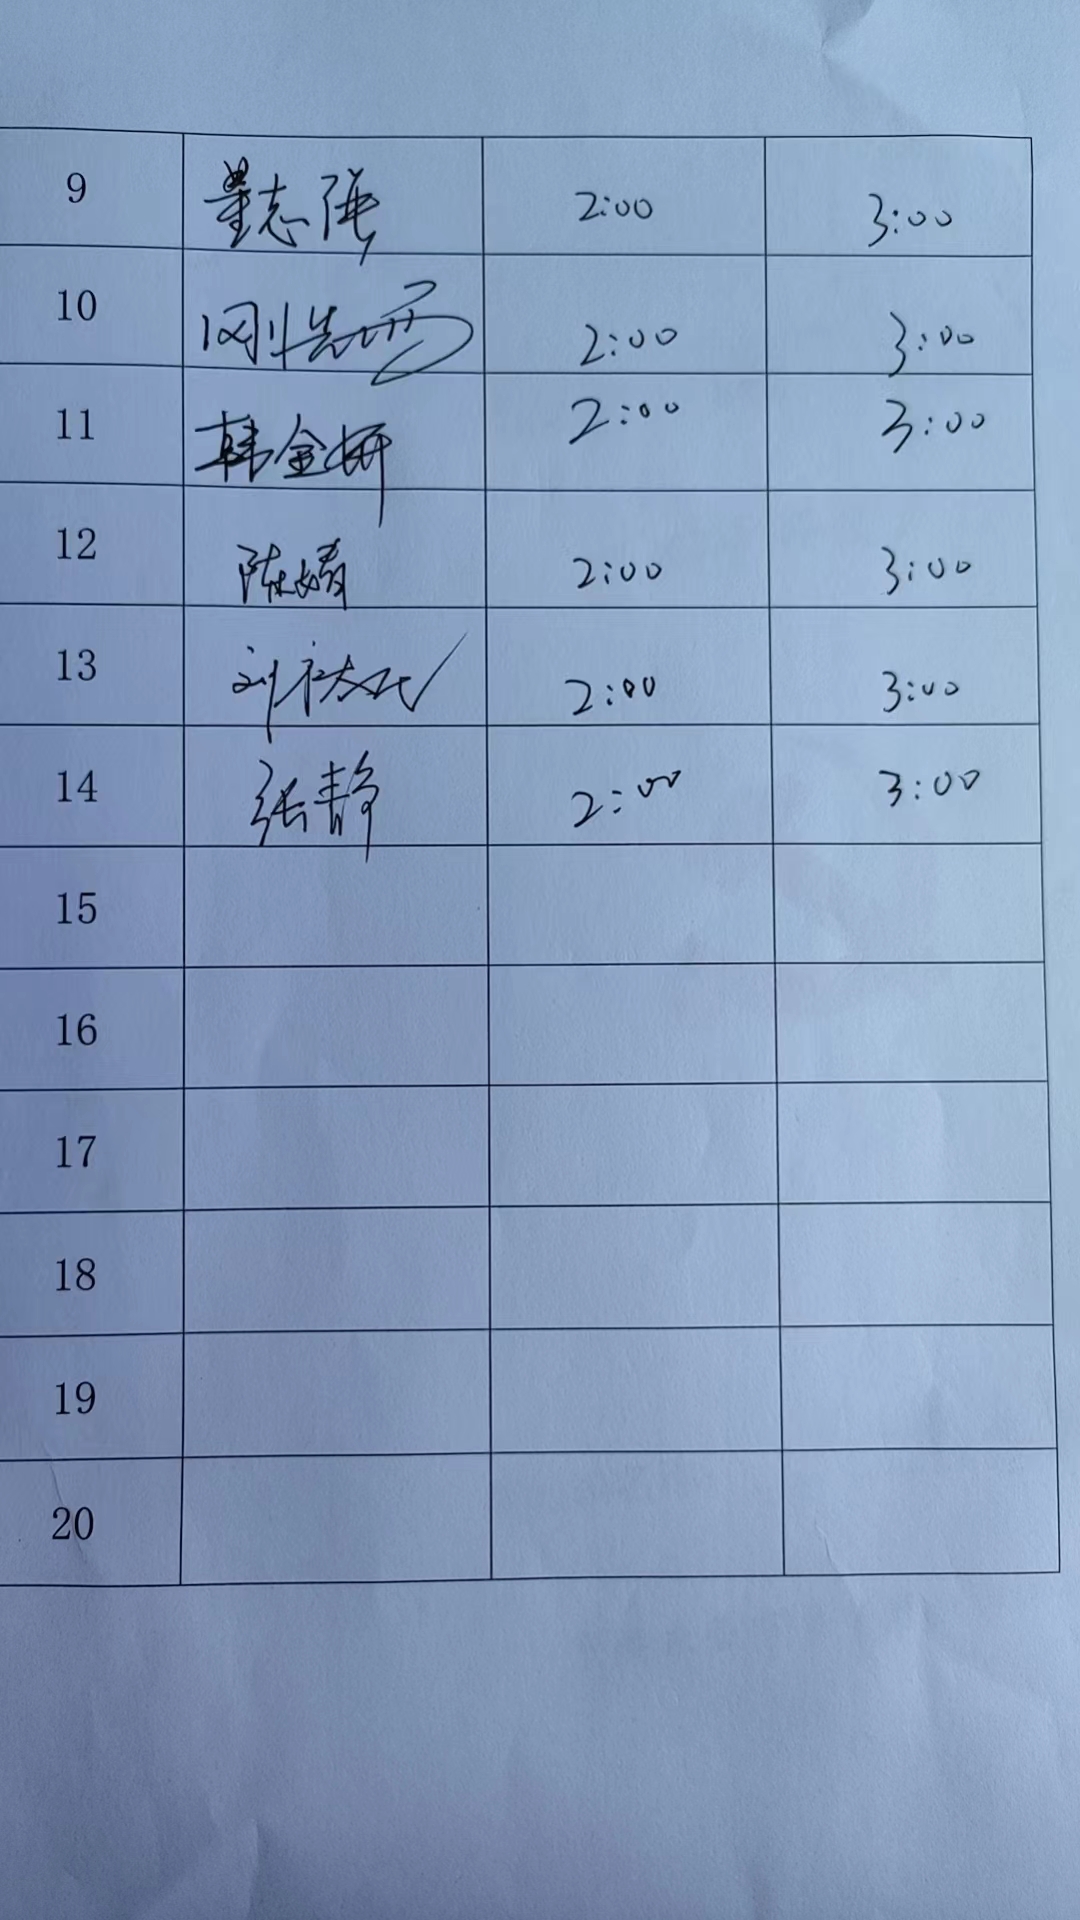 9 董志强 2:00 3:00
10 2:00 3:00
11 韩金妍 2:00 3:00
12 陈婧 2:00 3:00
13 刘 2:00 3:00
14 张静 2:00 3:00
15
16
17
18
19
20